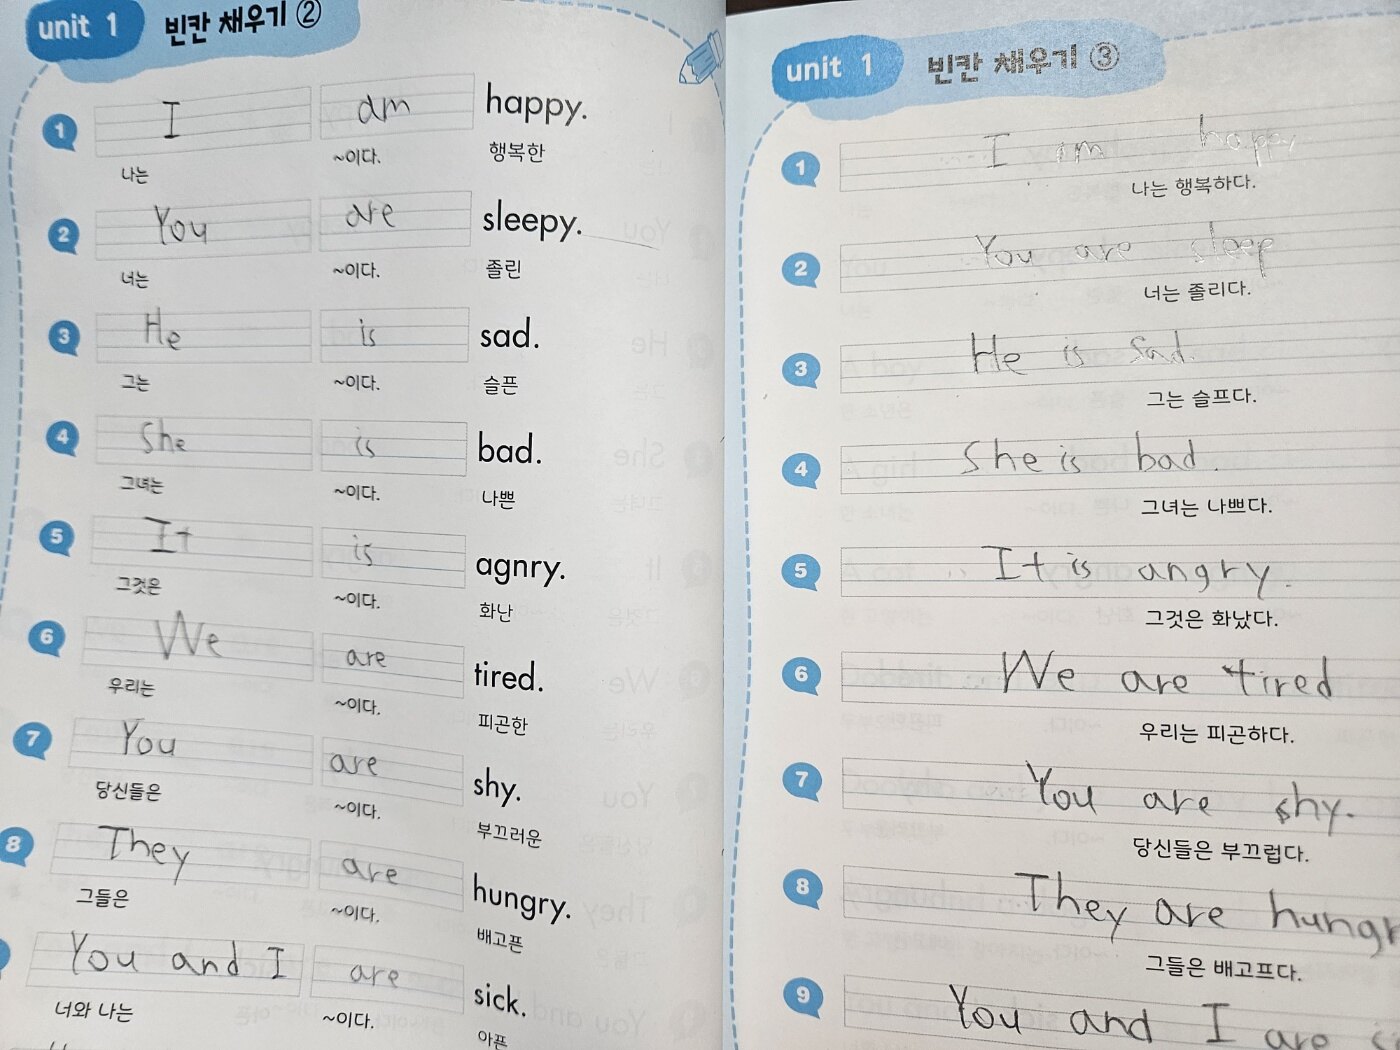 unit 1 빈칸 채우기 ②
1 I am happy.
나는 ~이다. 행복한
2 You are sleepy.
너는 ~이다. 졸린
3 He is sad.
그는 ~이다. 슬픈
4 She is bad.
그녀는 ~이다. 나쁜
5 It is agnry.
그것은 ~이다. 화난
6 We are tired.
우리는 ~이다. 피곤한
7 You are shy.
당신들은 ~이다. 부끄러운
8 They are hungry.
그들은 ~이다. 배고픈
You and I are sick.
너와 나는 ~이다. 아픈
unit 1 빈칸 채우기 ③
1 I am happy
나는 행복하다.
2 You are sleep
너는 졸리다.
3 He is sad.
그는 슬프다.
4 She is bad.
그녀는 나쁘다.
5 It is angry.
그것은 화났다.
6 We are tired
우리는 피곤하다.
7 You are shy.
당신들은 부끄럽다.
8 They are hungr
그들은 배고프다.
9 You and I are